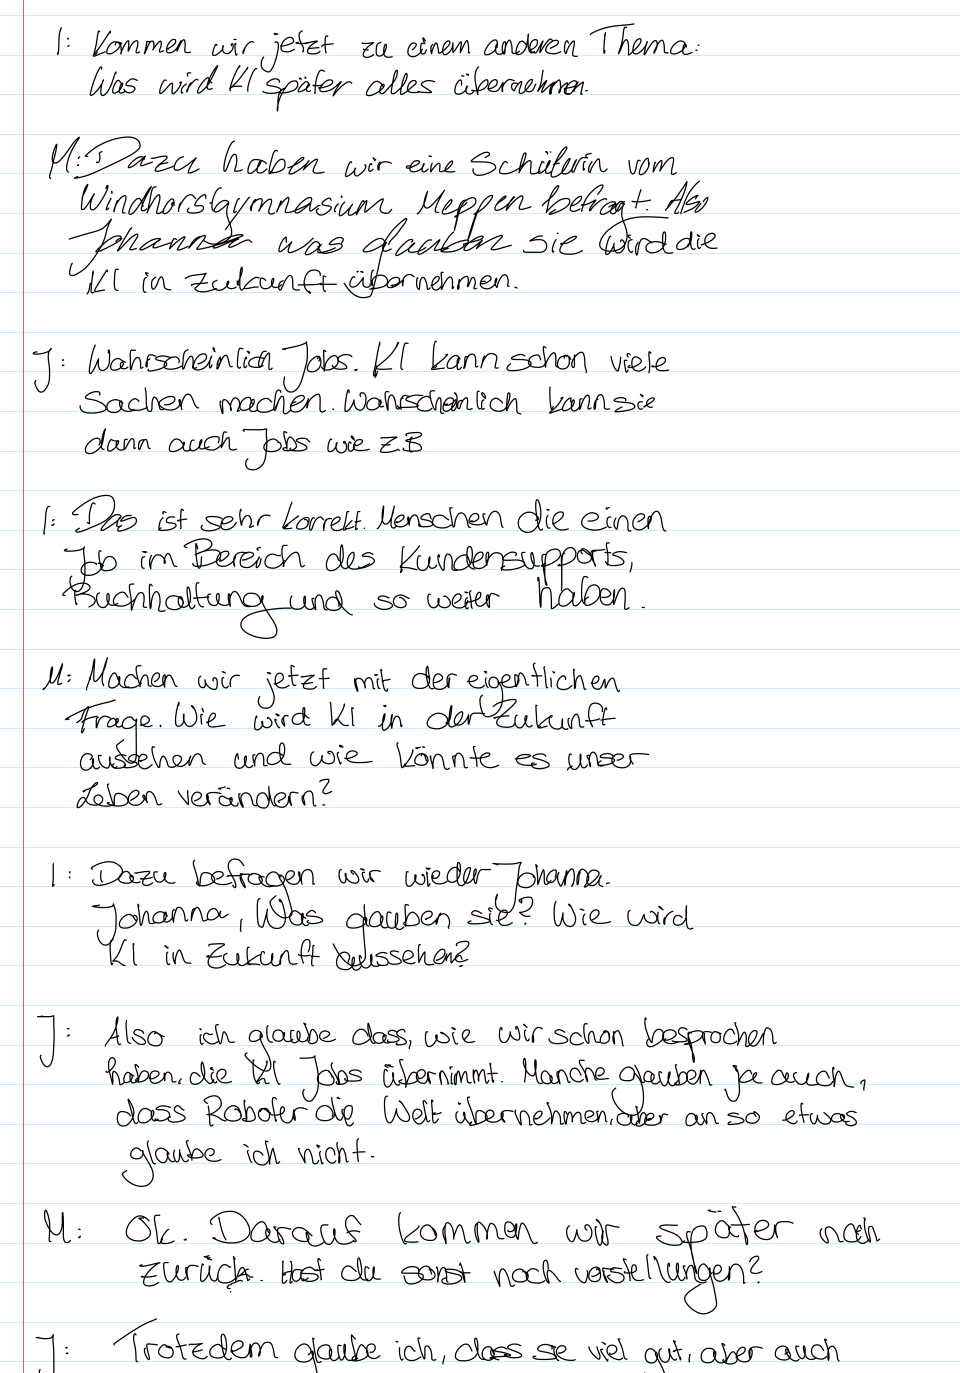 I: Kommen wir jetzt zu einem anderen Thema:
Was wird KI später alles übernehmen.
M: Dazu haben wir eine Schülerin vom
Windhorstgymnasium Meppen befragt. Also
Johanna was glauben sie wird die
KI in Zukunft übernehmen.
J: Wahrscheinlich Jobs. KI kann schon viele
Sachen machen. Wahrscheinlich kann sie
dann auch Jobs wie z.B
I: Das ist sehr korrekt. Menschen die einen
Job im Bereich des Kundensupports,
Buchhaltung und so weiter haben.
M: Machen wir jetzt mit der eigentlichen
Frage. Wie wird KI in der Zukunft
aussehen und wie könnte es unser
Leben verändern?
I: Dazu befragen wir wieder Johanna.
Johanna, Was glauben sie? Wie wird
KI in Zukunft aussehen?
J: Also ich glaube dass, wie wir schon besprochen
haben, die KI Jobs übernimmt. Manche glauben ja auch,
dass Roboter die Welt übernehmen, aber an so etwas
glaube ich nicht.
M: Ok. Darauf kommen wir später noch
zurück. Hast du sonst noch vorstellungen?
J: Trotzdem glaube ich, dass se viel gut, aber auch